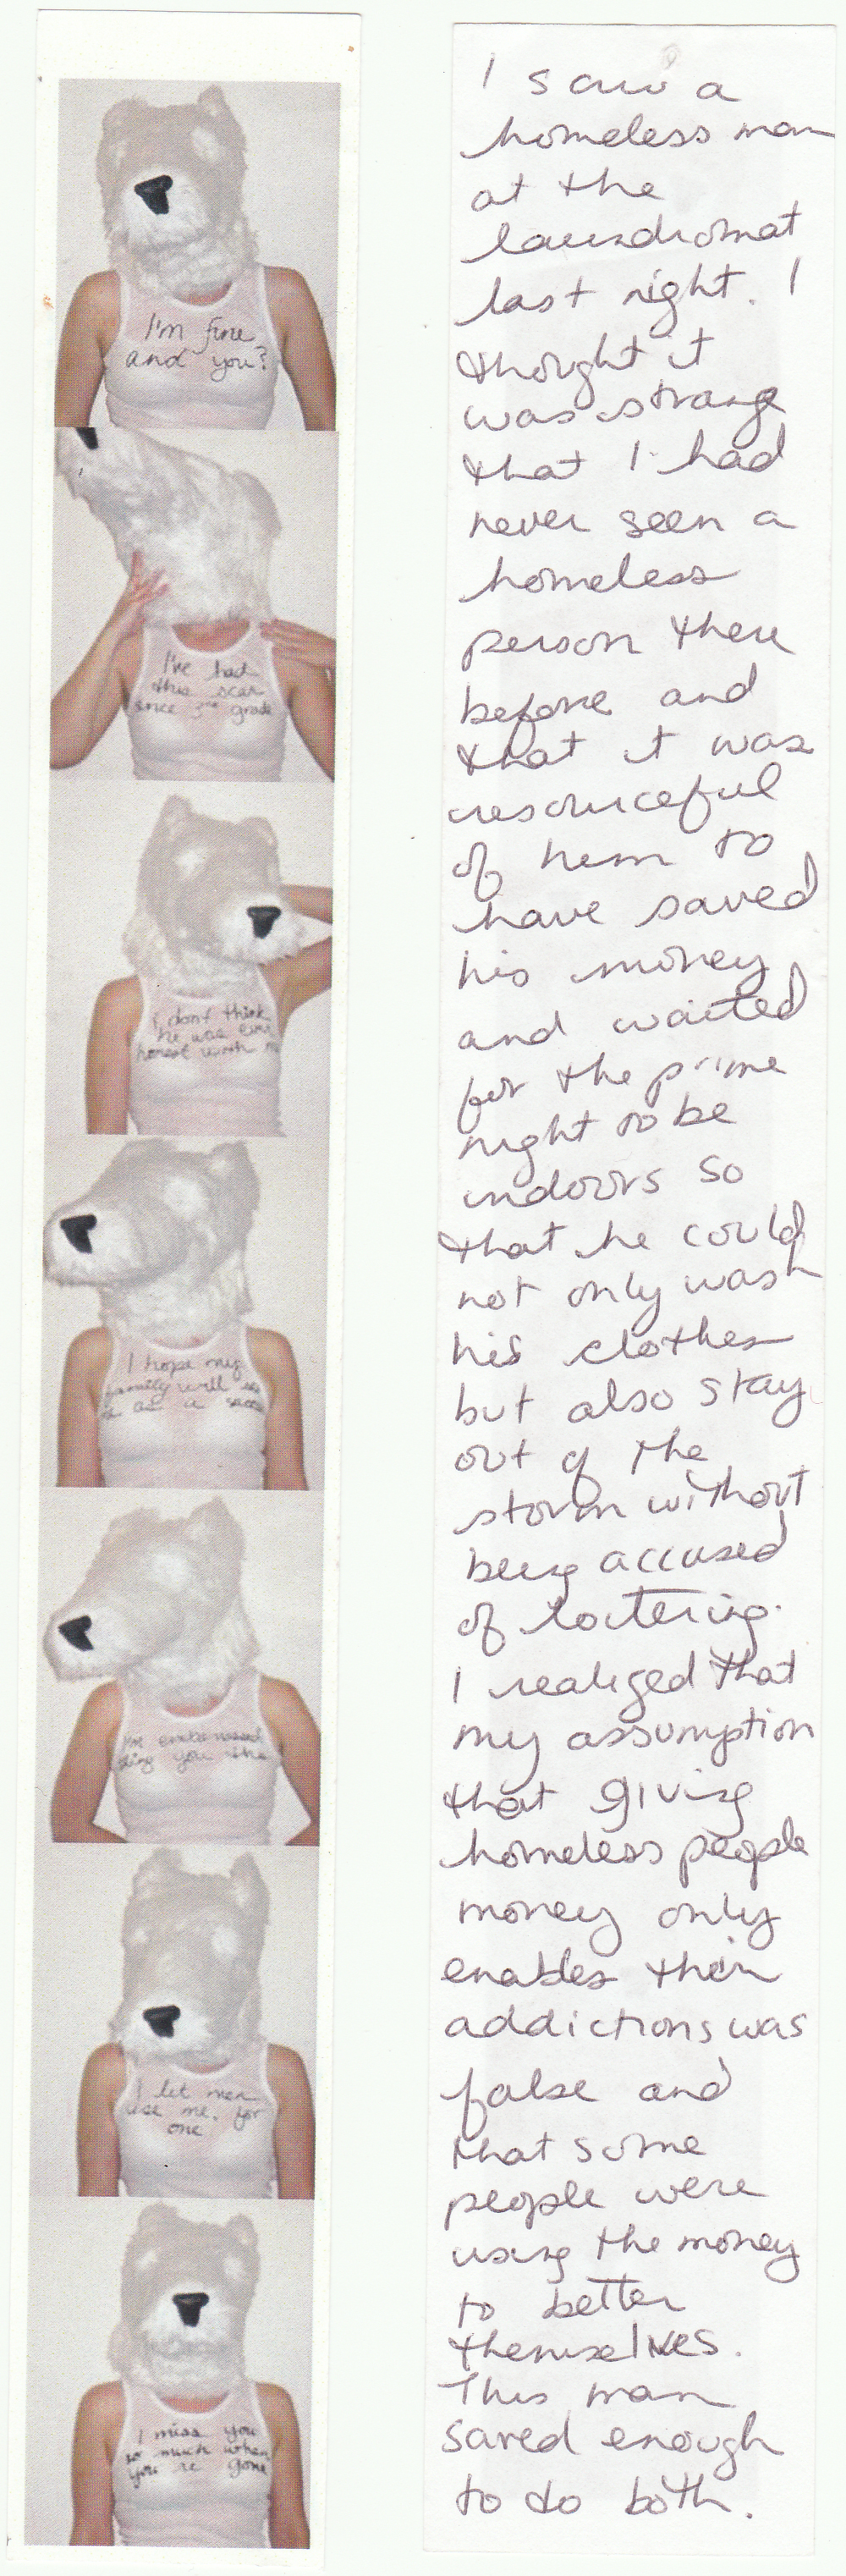 I'm fine
and you?
I've had
this scar
since 3rd grade
I don't think
he was ever
honest with me
I hope my
family will
as a
I'm embarrassed
you the
I let men
use me, for
one
I miss you
so much when
you're gone
I saw a
homeless man
at the
laundromat
last night. I
thought it
was strange
that I had
never seen a
homeless
person there
before and
that it was
resourceful
of him to
have saved
his money
and waited
for the prime
night to be
indoors so
that he could
not only wash
his clothes
but also stay
out of the
storm without
being accused
of loitering.
I realized that
my assumption
that giving
homeless people
money only
enables their
addictions was
false and
that some
people were
using the money
to better
themselves.
This man
saved enough
to do both.